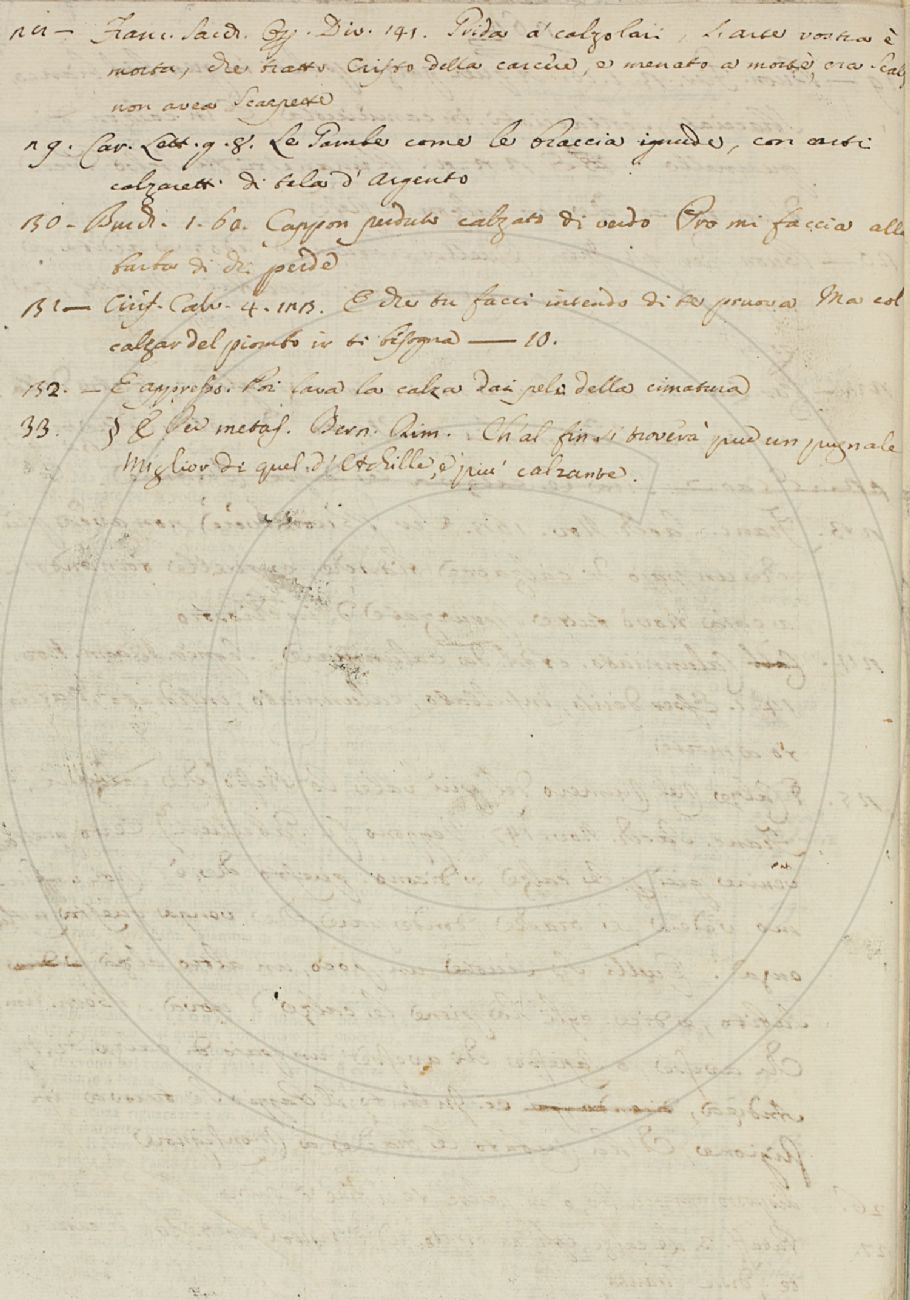 Franc. Sacch. Op. Div. 141. Grida a' calzolari, L'arte vostra è
morta, che tratto Cristo della carcere, e menato a morte, era Scalz
non avea Scarpette
n 9. Car. Lett. 9. 8. Le Gambe come le braccia ignude, con certi
calzaretti di tela d'Argento
130 - Burch. 1. 60. Cappon perduto calzato di verdo Pro mi faccia alle
barba di chi perde
131 — Cirif. Calv. 4. 123. E che tu facci intendo di te pruova Ma col
calzar del piombo ir ti bisogna — 10.
132. — E appresso. Poi lava la calza dai peli della cimatura
33. § E Per metaf. Bern. Rim. Ch'al fin si troverà pur un pugnale
Miglior di quel d'Achille, e più calzante.